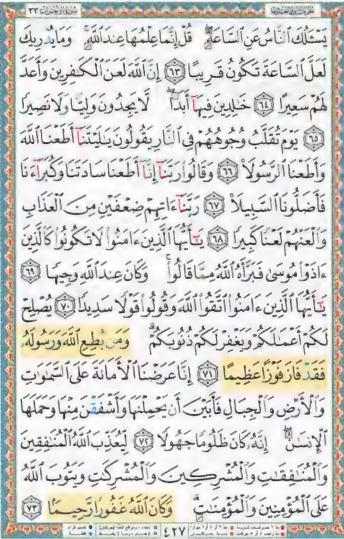 سورة الأحزاب ٣٣
يَسْـَٔلُكَ ٱلنَّاسُ عَنِ ٱلسَّاعَةِۖ قُلْ إِنَّمَا عِلْمُهَا عِندَ ٱللَّهِۚ وَمَا يُدْرِيكَ
لَعَلَّ ٱلسَّاعَةَ تَكُونُ قَرِيبًا ٦٣ إِنَّ ٱللَّهَ لَعَنَ ٱلْكَٰفِرِينَ وَأَعَدَّ
لَهُمْ سَعِيرًا ٦٤ خَٰلِدِينَ فِيهَآ أَبَدًاۖ لَّا يَجِدُونَ وَلِيًّا وَلَا نَصِيرًا
٦٥ يَوْمَ تُقَلَّبُ وُجُوهُهُمْ فِى ٱلنَّارِ يَقُولُونَ يَٰلَيْتَنَآ أَطَعْنَا ٱللَّهَ
وَأَطَعْنَا ٱلرَّسُولَا۠ ٦٦ وَقَالُوا۟ رَبَّنَآ إِنَّآ أَطَعْنَا سَادَتَنَا وَكُبَرَآءَنَا
فَأَضَلُّونَا ٱلسَّبِيلَا۠ ٦٧ رَبَّنَآ ءَاتِهِمْ ضِعْفَيْنِ مِنَ ٱلْعَذَابِ
وَٱلْعَنْهُمْ لَعْنًا كَبِيرًا ٦٨ يَٰٓأَيُّهَا ٱلَّذِينَ ءَامَنُوا۟ لَا تَكُونُوا۟ كَٱلَّذِينَ
ءَاذَوْا۟ مُوسَىٰ فَبَرَّأَهُ ٱللَّهُ مِمَّا قَالُوا۟ۚ وَكَانَ عِندَ ٱللَّهِ وَجِيهًا ٦٩
يَٰٓأَيُّهَا ٱلَّذِينَ ءَامَنُوا۟ ٱتَّقُوا۟ ٱللَّهَ وَقُولُوا۟ قَوْلًا سَدِيدًا ٧٠ يُصْلِحْ
لَكُمْ أَعْمَٰلَكُمْ وَيَغْفِرْ لَكُمْ ذُنُوبَكُمْۗ وَمَن يُطِعِ ٱللَّهَ وَرَسُولَهُۥ
فَقَدْ فَازَ فَوْزًا عَظِيمًا ٧١ إِنَّا عَرَضْنَا ٱلْأَمَانَةَ عَلَى ٱلسَّمَٰوَٰتِ
وَٱلْأَرْضِ وَٱلْجِبَالِ فَأَبَيْنَ أَن يَحْمِلْنَهَا وَأَشْفَقْنَ مِنْهَا وَحَمَلَهَا
ٱلْإِنسَٰنُۖ إِنَّهُۥ كَانَ ظَلُومًا جَهُولًا ٧٢ لِّيُعَذِّبَ ٱللَّهُ ٱلْمُنَٰفِقِينَ
وَٱلْمُنَٰفِقَٰتِ وَٱلْمُشْرِكِينَ وَٱلْمُشْرِكَٰتِ وَيَتُوبَ ٱللَّهُ
عَلَى ٱلْمُؤْمِنِينَ وَٱلْمُؤْمِنَٰتِۗ وَكَانَ ٱللَّهُ غَفُورًا رَّحِيمًا ٧٣
٤٢٧